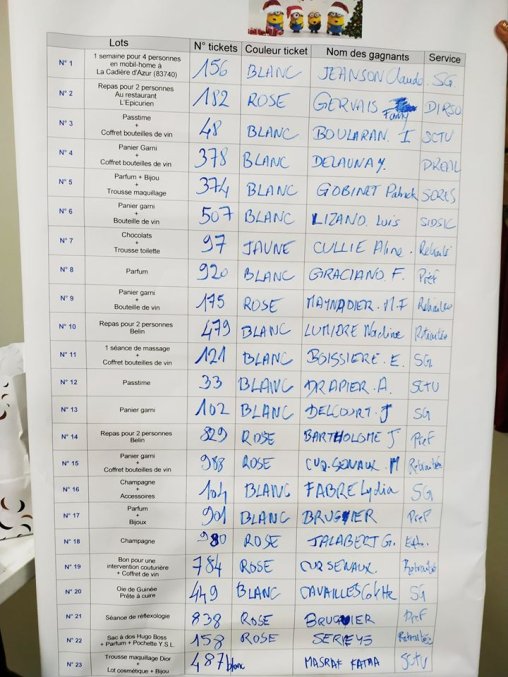 Lots N° tickets Couleur ticket Nom des gagnants Service
N° 1 1 semaine pour 4 personnes en mobil-home à La Cadière d'Azur (83740) 156 BLANC JEANSON Claude SG
N° 2 Repas pour 2 personnes Au restaurant L'Epicurien 182 ROSE GERVAIS Fanny DIRSO
N° 3 Passtime + Coffret bouteilles de vin 48 BLANC BOULARAN. I SCTU
N° 4 Panier Garni + Coffret bouteilles de vin 378 BLANC DELAUNAY. DREAL
N° 5 Parfum + Bijou + Trousse maquillage 374 BLANC GOBINET Patrick SORES
N° 6 Panier garni + Bouteille de vin 507 BLANC LIZANO. Luis SIDSIC
N° 7 Chocolats + Trousse toilette 97 JAUNE CULLIE Aline. Retraité
N° 8 Parfum 920 BLANC GRACIANO. F. Pref
N° 9 Panier garni + Bouteille de vin 175 ROSE MAYNADIER. M.F Retraitée
N° 10 Repas pour 2 personnes Belin 479 BLANC LUMIERE Nadine Retraitée
N° 11 1 séance de massage + Coffret bouteilles de vin 121 BLANC BOISSIERE. E. SG
N° 12 Passtime 33 BLANC DRAPIER. A. SCTU
N° 13 Panier garni 102 BLANC DELCOURT. J SG
N° 14 Repas pour 2 personnes Belin 829 ROSE BARTHOLOME J Pref
N° 15 Panier garni + Coffret bouteilles de vin 988 ROSE M Retraitée
N° 16 Champagne + Accessoires 104 BLANC FABRE Lydia SG
N° 17 Parfum + Bijoux 901 BLANC BRUGUIER Pref
N° 18 Champagne 980 ROSE JALABERT G.
N° 19 Bon pour une intervention couturière + Coffret de vin 784 ROSE Retraitée
N° 20 Oie de Guinée Prête à cuire 449 BLANC CAVAILLES SG
N° 21 Séance de réflexologie 838 ROSE BRUGUIER Pref
N° 22 Sac à dos Hugo Boss + Parfum + Pochette Y.S.L. 158 ROSE SERIEYS Retraitée
N° 23 Trousse maquillage Dior + Lot cosmétique + Bijou 487 blanc MASRAF SCTU